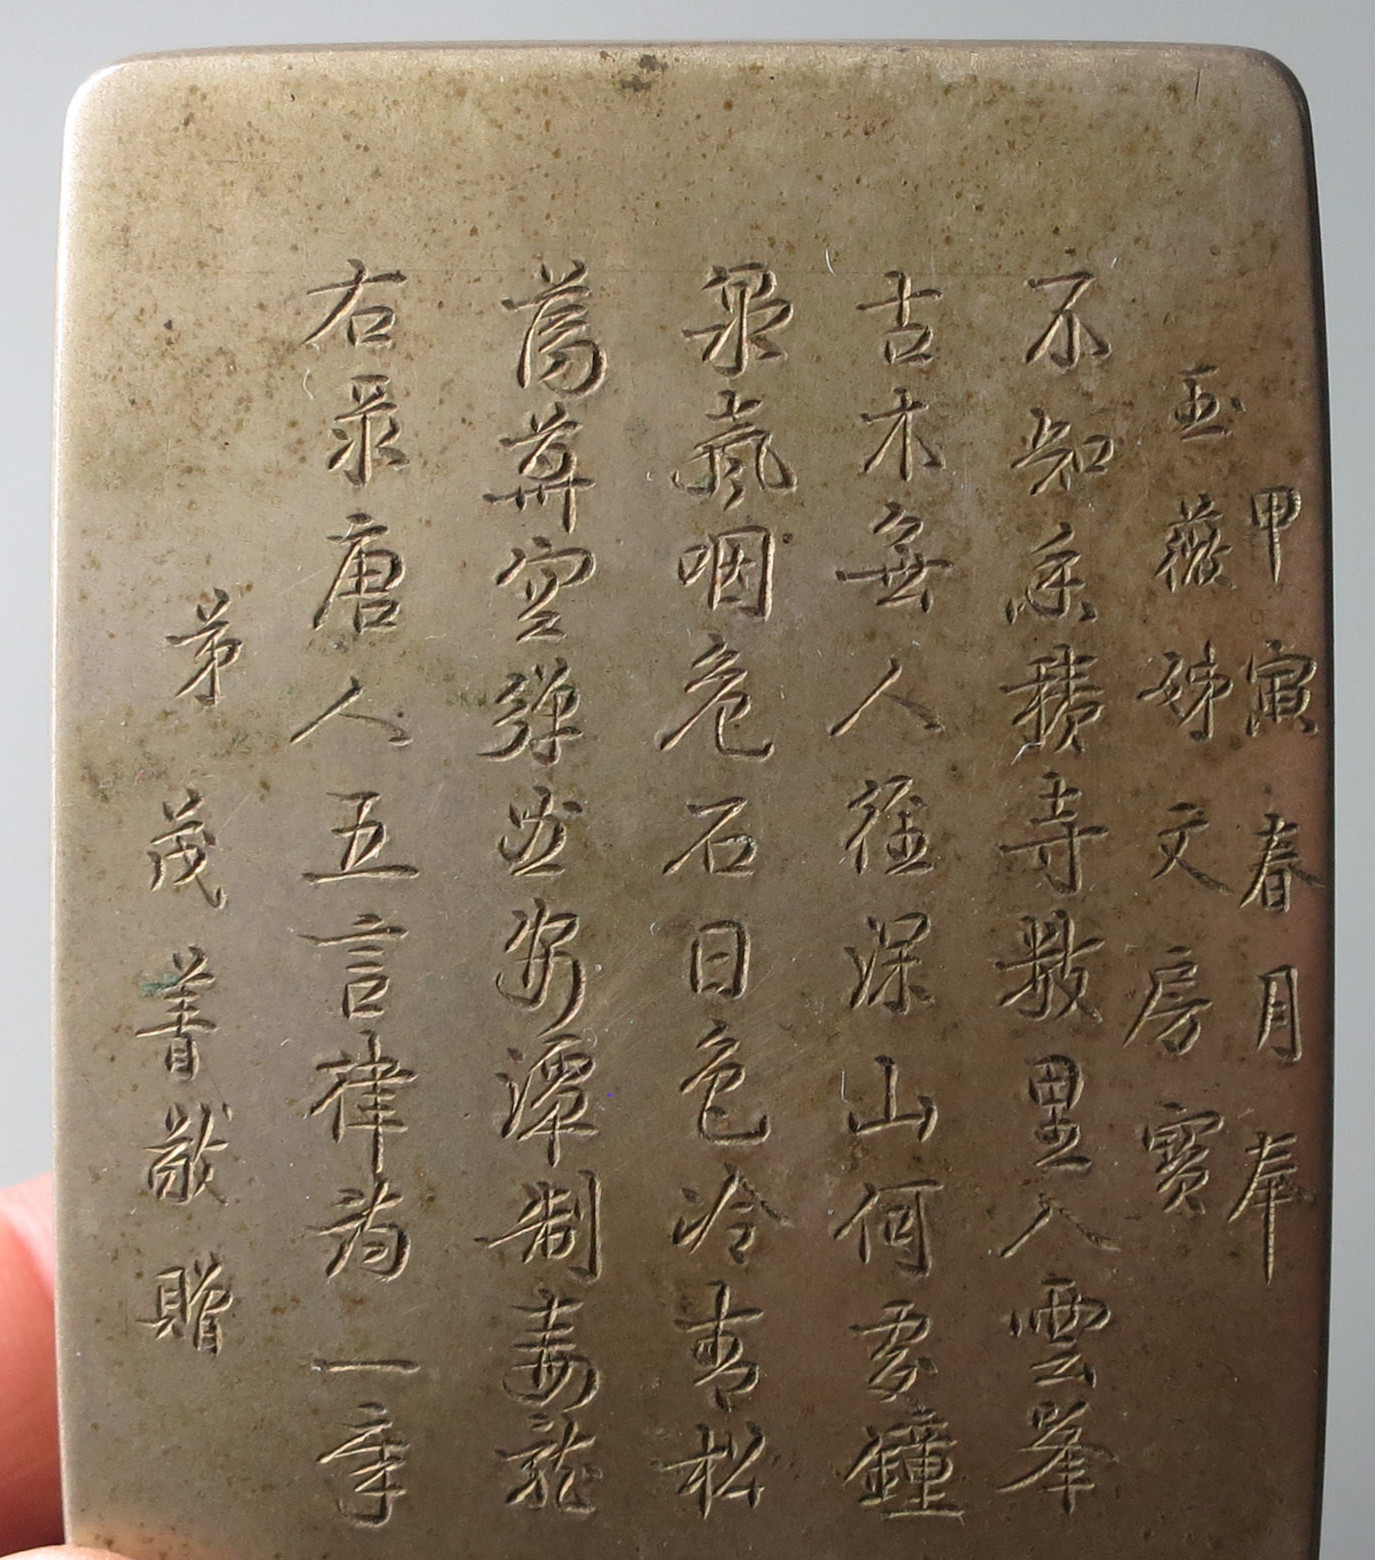 甲寅春月奉
玉薇姊文房寶
不知香積寺數里入雲峯
古木無人徑深山何處鐘
泉聲咽危石日色冷青松
薄暮空禪曲安潭制毒龍
右录唐人五言律为一章
弟茂菁敬贈